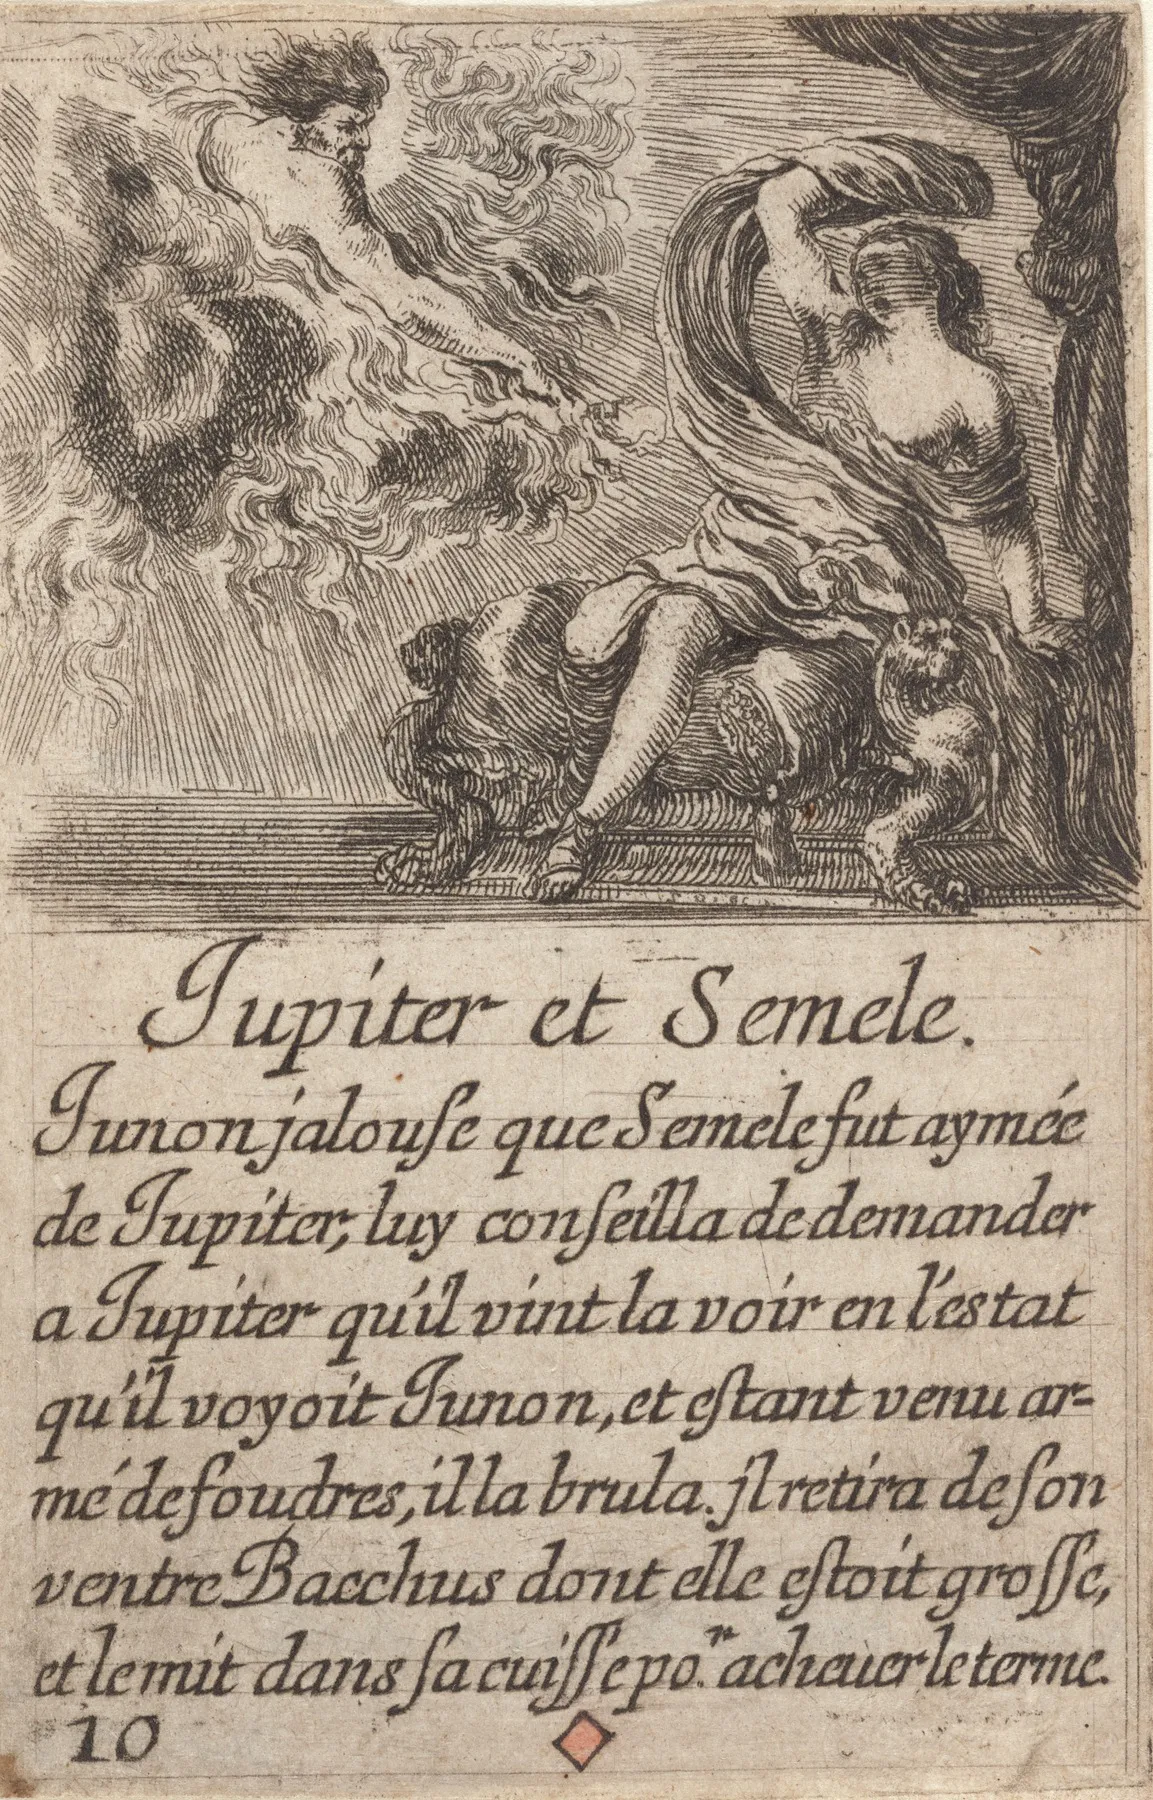 Jupiter et Semele.
Junon jalouſe que Semele fut aymée
de Jupiter, luy conſeilla de demander
a Jupiter qu'il vint la voir en l'estat
qu'il voyoit Junon, et eſtant venu ar-
mé de foudres, il la brula. jl retira de ſon
ventre Bacchus dont elle eſtoit groſſe,
et le mit dans ſa cuiſſe po.ʳ acheuer le terme.
10